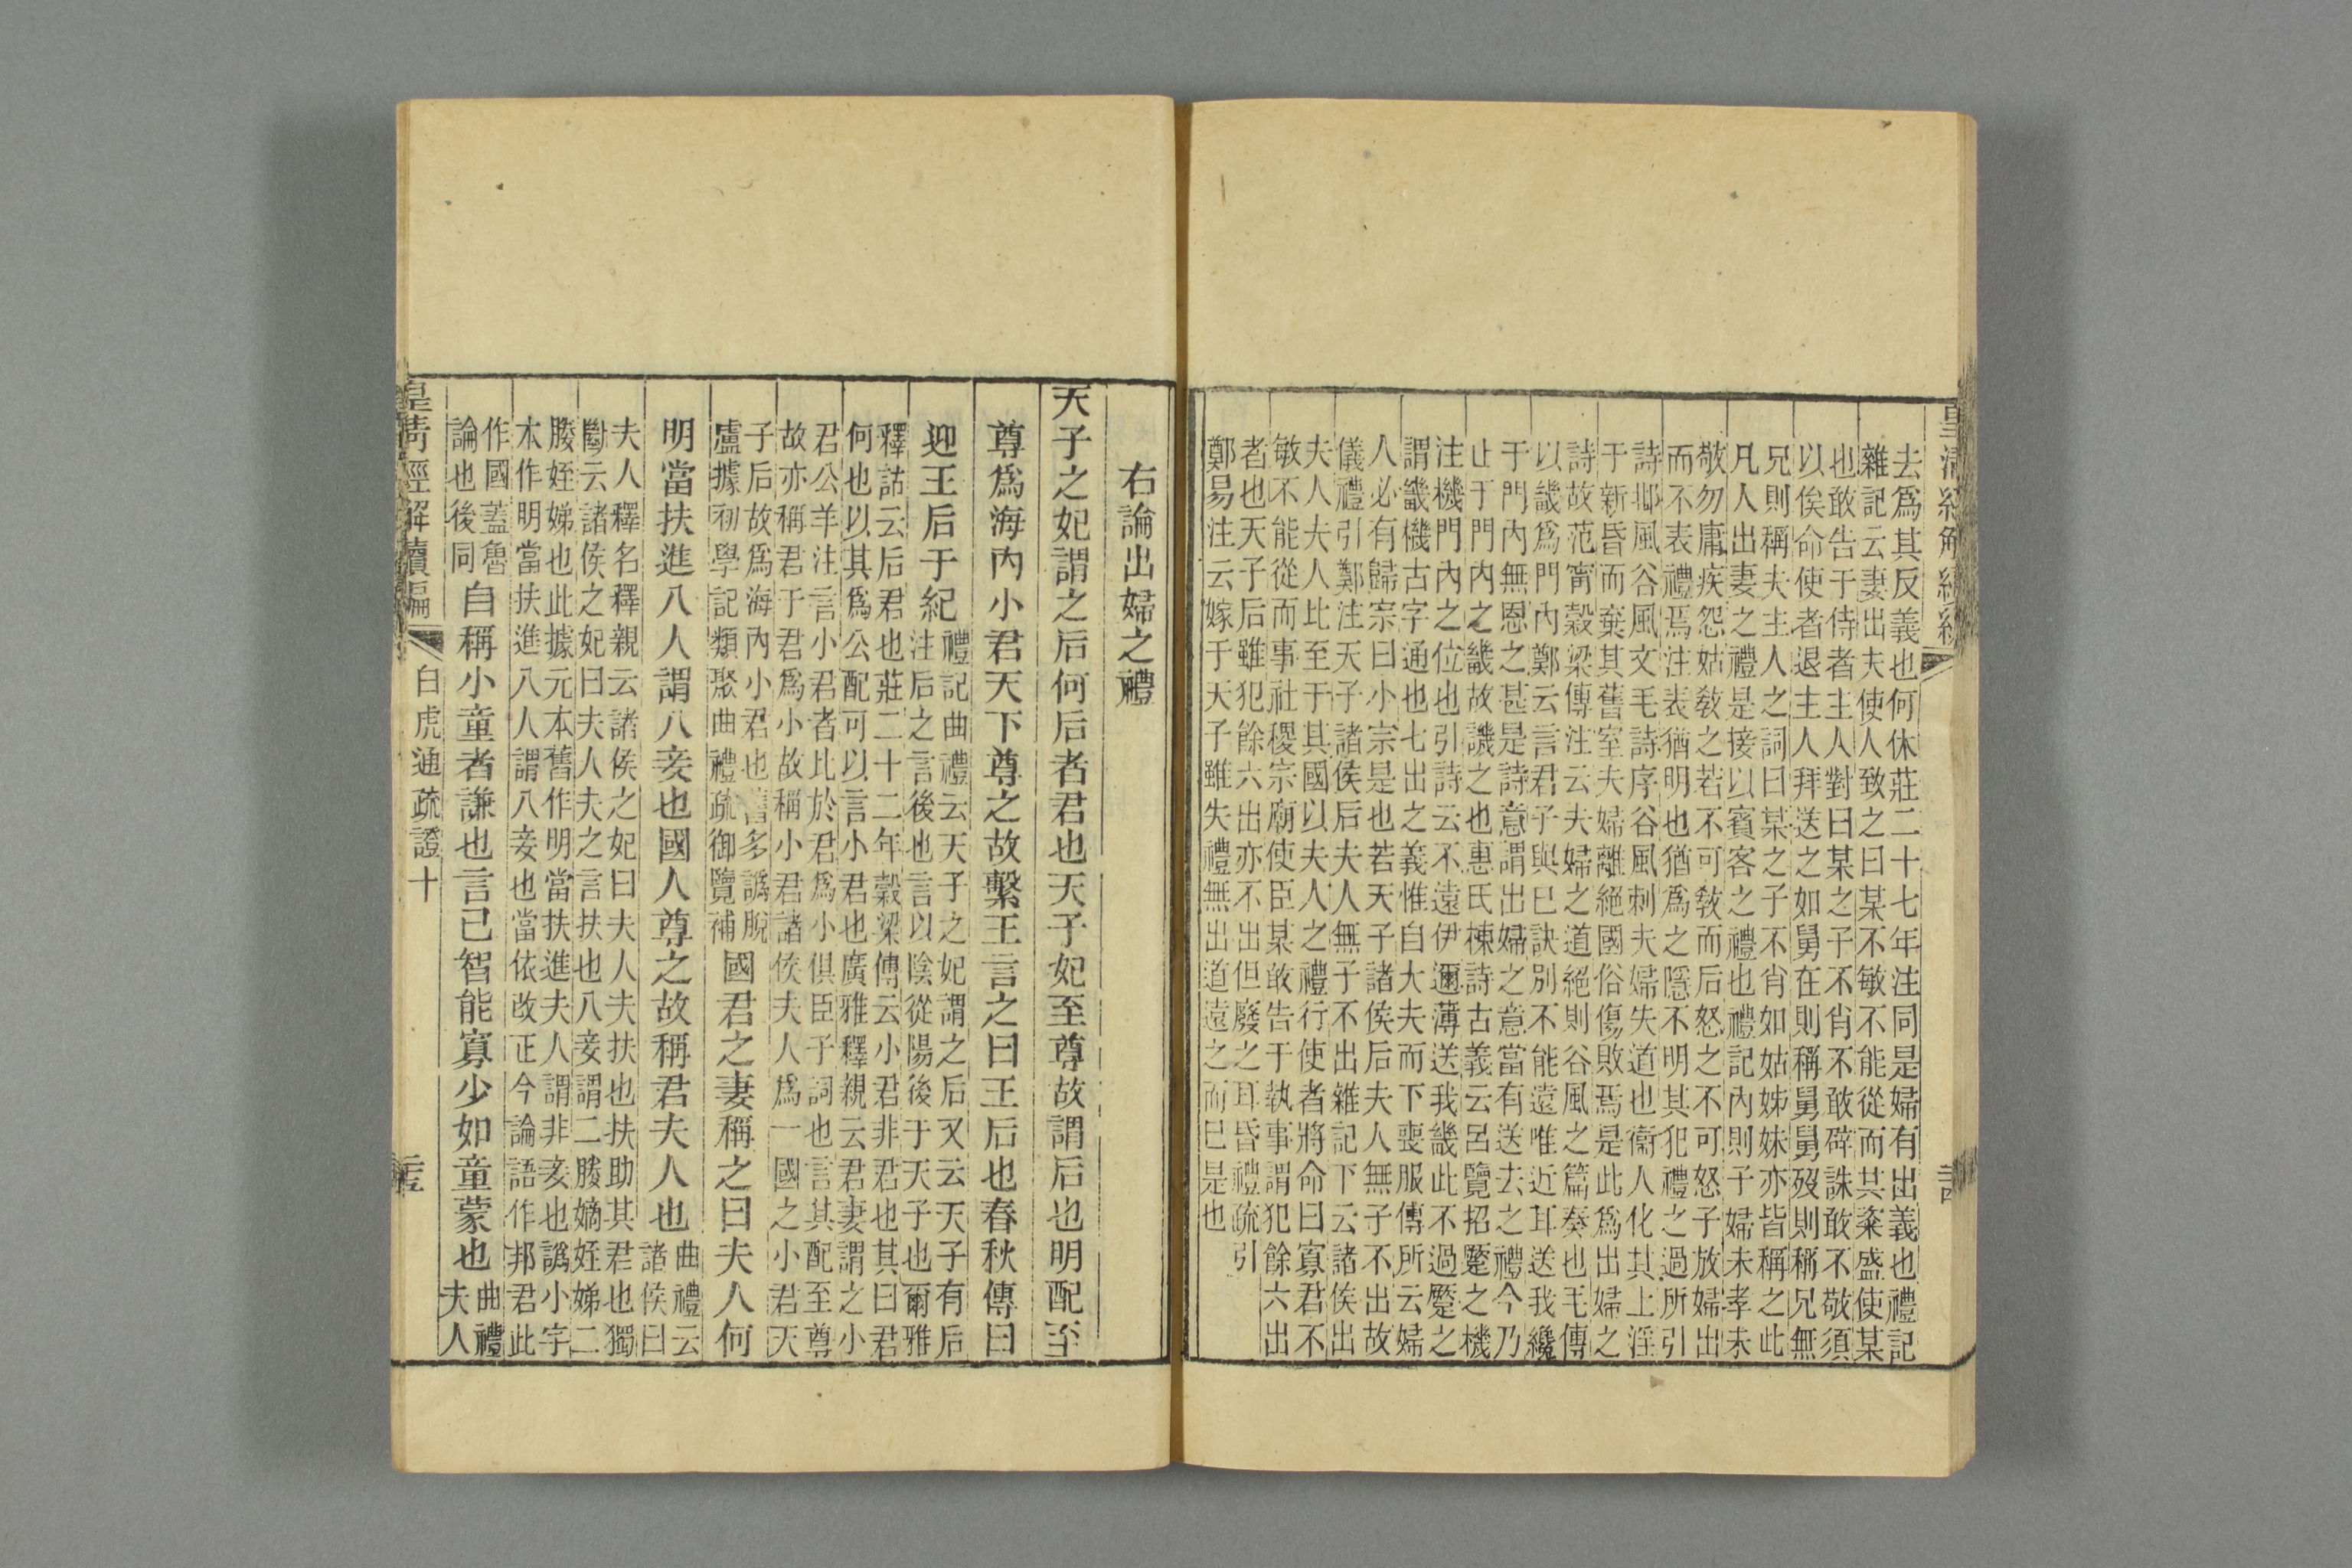 皇淸經解續編
去爲其反義也何休莊二十七年注同是婦有出義也禮記
雜記云妻出夫使人致之曰某不敏不能從而共粢盛使某
也敢告于侍者主人對曰某之子不肖不敢辟誅敢不敬須
以俟命使者退主人拜送之如舅在則稱舅舅歿則稱兄無
兄則稱夫主人之詞曰某之子不肖如姑姊妹亦皆稱之此
凡人出妻之禮是接以賓客之禮也禮記內則子婦未孝未
敬勿庸疾怨姑敎之若不可敎而后怒之不可怒子放婦出
而不表禮焉注表猶明也猶爲之隱不明其犯禮之過所引
詩邶風谷風文毛詩序谷風刺夫婦失道也衞人化其上淫
于新昏而棄其舊室夫婦離絕國俗傷敗焉是此爲出婦之
詩故范甯穀梁傳注云夫婦之道絕則谷風之篇奏也毛傳
以譏爲門內鄭云言君子與已訣別不能遠唯近耳送我纔
于門內無恩之甚是詩意謂出婦之意當有送去之禮今乃
止于門內之畿故譏之也惠氏棟詩古義云呂覽招蹷之機
注機門內之位也引詩云不遠伊邇薄送我畿此不過蹷之
謂畿機古字通也七出之義惟自大夫而下喪服傳所云婦
人必有歸宗曰小宗是也若天子諸侯后夫人無子不出故
儀禮引鄭注天子諸侯后夫人無子不出雜記下云諸侯出
夫人夫人比至于其國以夫人之禮行使者將命曰寡君不
敏不能從而事社稷宗廟使臣某敢告于執事謂犯餘六出
者也天子后雖犯餘六出亦不出但廢之耳昏禮疏引
鄭易注云嫁于天子雖失禮無出道遠之而已是也
右論出婦之禮
天子之妃謂之后何后者君也天子妃至尊故謂后也明配至
尊爲海內小君天下尊之故繫王言之曰王后也春秋傳曰
迎王后于紀
禮記曲禮云天子之妃謂之后又云天子有后
注后之言後也言以陰從陽後于天子也爾雅
釋詁云后君也莊二十二年穀梁傳云小君非君也其曰君
何也以其爲公配可以言小君也廣雅釋親云君妻謂之小
君公羊注言小君者比於君爲小俱臣子詞也言其配至尊
故亦稱君于君爲小故稱小君諸侯夫人爲一國之小君天
子后故爲海內小君也舊多譌脫
盧據初學記類聚曲禮疏御覽補
國君之妻稱之曰夫人何
明當扶進八人謂八妾也國人尊之故稱君夫人也
曲禮云
諸侯曰
夫人釋名釋親云諸侯之妃曰夫人夫扶也扶助其君也獨
斷云諸侯之妃曰夫人夫之言扶也八妾謂二媵嫡姪娣二
媵姪娣也此據元本舊作明當扶進夫人謂非妾也譌小字
本作明當扶進八人謂八妾也當依改正今論語作邦君此
作國蓋魯
論也後同
自稱小童者謙也言己智能寡少如童蒙也
曲禮
夫人
皇淸經解續編
白虎通疏證十